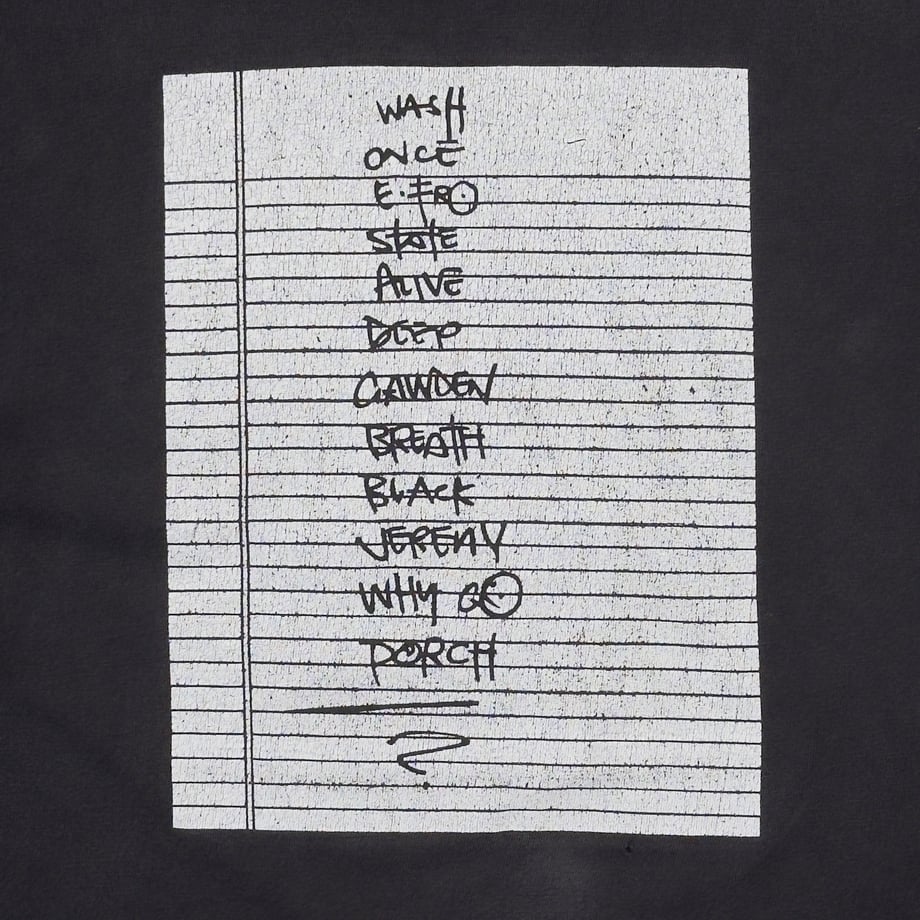 WASH
ONCE
E. FRO
STATE
ALIVE
DEEP
GARDEN
BREATH
BLACK
JEREMY
WHY GO
PORCH
?